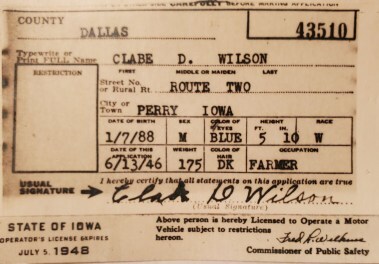 CAREFULLY BEFORE MAKING APPLICATION
COUNTY
DALLAS 43510
Typewrite or
Print FULL Name CLABE D. WILSON
RESTRICTION FIRST MIDDLE OR MAIDEN LAST
Street No.
or Rural Rt. ROUTE TWO
City or
Town PERRY IOWA
DATE OF BIRTH SEX COLOR OF EYES HEIGHT FT. IN. RACE
1/7/88 M BLUE 5 10 W
DATE OF THIS APPLICATION WEIGHT COLOR OF HAIR OCCUPATION
6/13/46 175 DK FARMER
I hereby certify that all statements on this application are true
USUAL
SIGNATURE Clabe D Wilson
(Usual Signature)
STATE OF IOWA
OPERATOR'S LICENSE EXPIRES
JULY 5, 1948
Above person is hereby Licensed to Operate a Motor
Vehicle subject to restrictions
hereon.
Commissioner of Public Safety